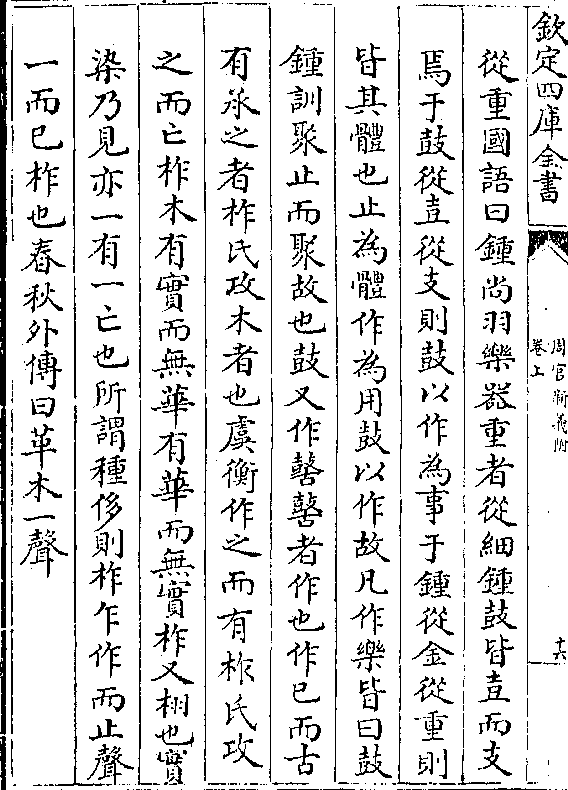 欽定四庫全書
周官新義附
卷上
十六
從重國語曰鍾尚羽樂器重者從細鍾鼓皆壴而支
焉于鼓從壴從支則鼓以作為事于鍾從金從重則
皆其體也止為體作為用鼓以作故凡作樂皆曰鼓
鍾訓聚止而聚故也鼓又作鼛鼛者作也作已而古
有承之者柞氏攻木者也虞衡作之而有柞氏攻
之而亡柞木有實而無華有華而無實柞又栩也實
染乃見亦一有一亡也所謂種侈則柞乍作而止聲
一而已柞也春秋外傳曰革木一聲